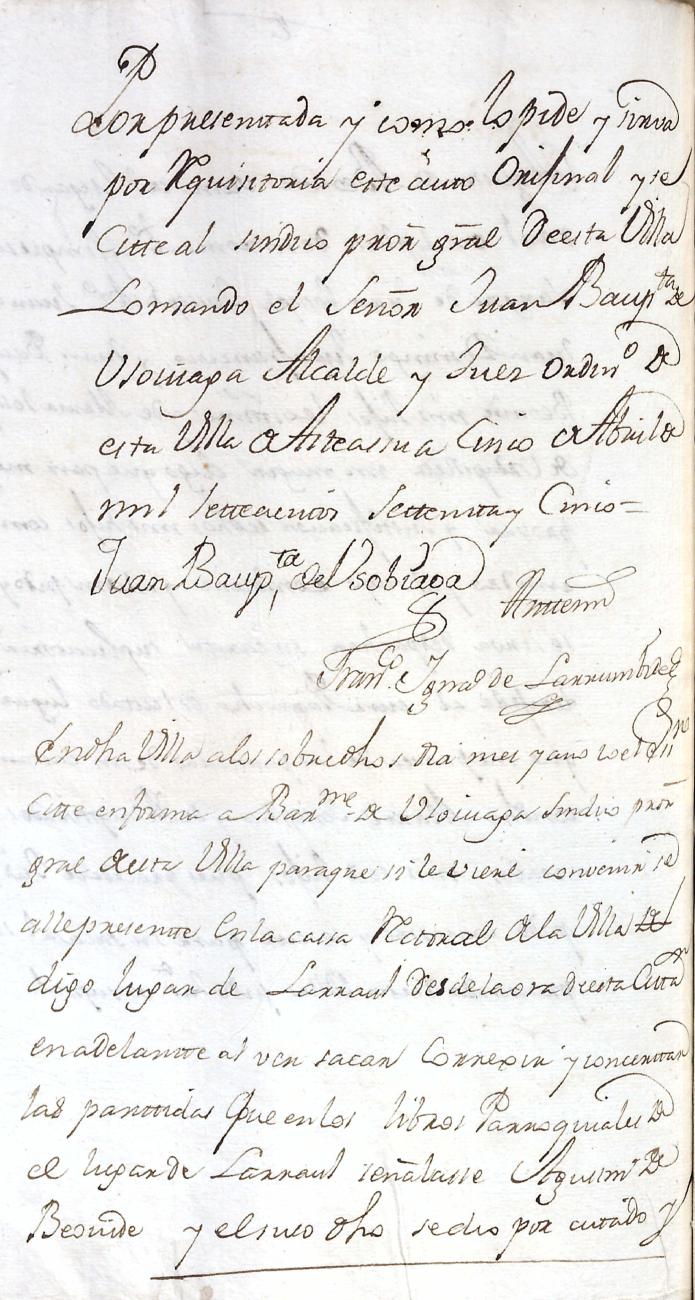 Por presenttada y como lo pide y sirva
por Requisitoria este auto Orijinal y se
Citte al sindico pror gral de esta Villa
Lo mando el Señor Juan Baupta de
Usoviaga Alcalde y Juez ordino de
esta Villa de Asteassua Cinco de Abril de
mil settecientos settentta y Cinco =
Juan Baupta de Usobiaga
Antte mi
Franco Ignao de Larrumbide
En dha Villa a los sobredhos dia mes y año io el Esno
Citte en forma a Barme de Usoviaga Sindico pror
gral de esta Villa para que si le viene convenir se
alle presentte en la cassa Rectoral de la Villa de
digo lugar de Larraul desde la ora de esta Citton
en adelantte al ver sacar Correxir y concertar
las parttidas que en los libros Parroquiales de
el lugar de Larraul señalasse Agustin de
Beovide y el suso dho se dio por cittado y